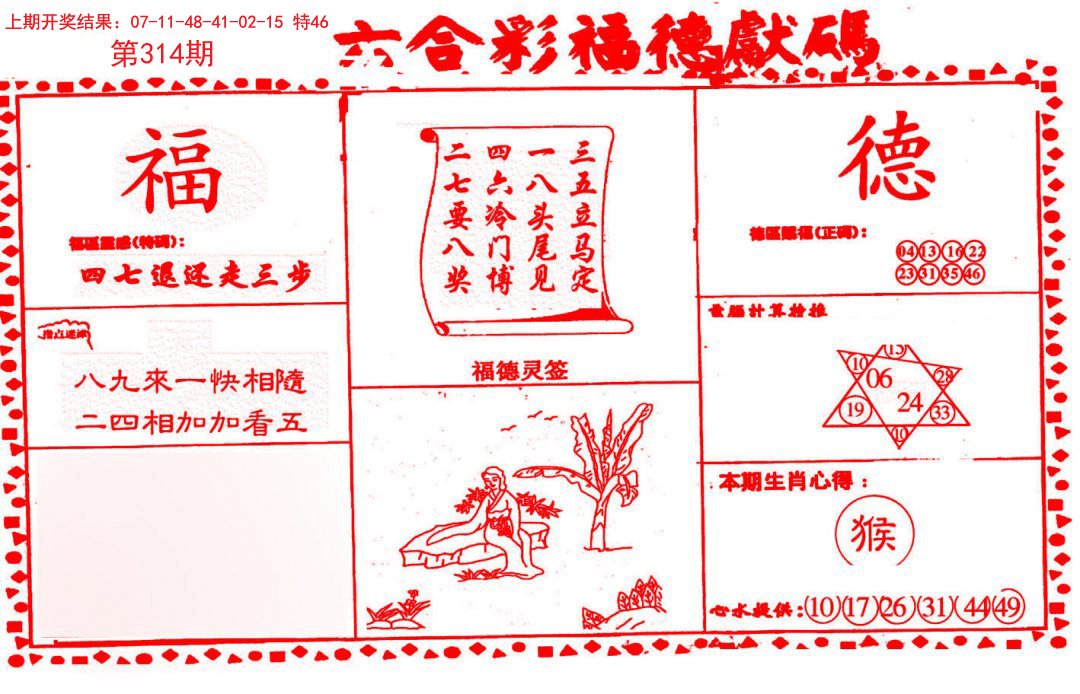 上期开奖结果：07-11-48-41-02-15 特46
第314期
六合彩福德獻碼
福
福區靈感(特碼)：
四七退还走三步
指点迷津
八九來一快相隨
二四相加加看五
三五立马定
一八头尾见
四六冷门博
二七要八奖
福德灵签
德
德區賜福(正碼)：
04 13 16 22
23 31 35 46
電腦計算於推
13
10
06
28
19
24
33
10
本期生肖心得：
猴
心水提供：10 17 26 31 44 49